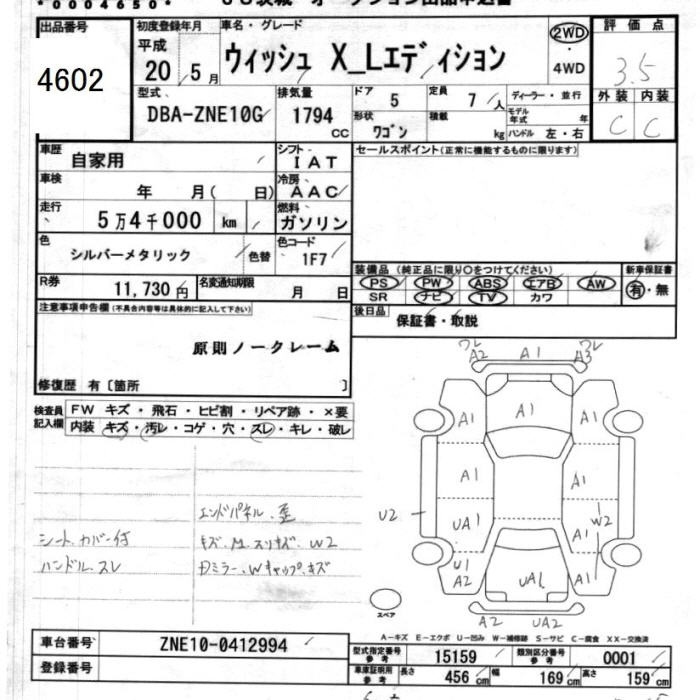 *0004650*
出品番号 4602
初度登録年月 平成 20年5月
車名・グレード ウィッシュ X_Lエディション
2WD・4WD
評価点 3.5
外装 C 内装 C
型式 DBA-ZNE10G
排気量 1794 CC
ドア 5
形状 ワゴン
定員 7人
積載 kg
ディーラー・並行
モデル年式 年
ハンドル 左・右
車歴 自家用
シフト IAT
セールスポイント(正常に機能するものに限ります)
車検 年 月( 日)
冷房 AAC
走行 5万4千000 km
燃料 ガソリン
色 シルバーメタリック 色替
色コード 1F7
装備品(純正品に限り○をつけてください)
PS PW ABS エアB AW
SR ナビ TV カワ
新車保証書 有・無
R券 11,730円
名変通知期限 月 日
後日品 保証書・取説
注意事項申告欄(不具合内容等は具体的に記入して下さい)
原則ノークレーム
修復歴 有〔箇所 〕
検査員記入欄
FW キズ・飛石・ヒビ割・リペア跡・×要
内装 キズ・汚レ・コゲ・穴・スレ・キレ・破レ
エンドパネル.歪
シート.カバー付 キズ.M.スリキズ.W2
ハンドル.スレ Dミラー.Wキャップ.キズ
ワレ A2 A1 ワレ A3
A1 A1 A1
A1 A1
U2 UA1 W2
U1 A2 A1
UA1
A2 UA2
スペア
A−キズ E−エクボ U−凹み W−補修跡 S−サビ C−腐食 XX−交換済
車台番号 ZNE10-0412994
登録番号
型式指定番号 参考 15159
類別区分番号 参考 0001
車庫証明用 参考 長さ 456cm 幅 169cm 高さ 159cm